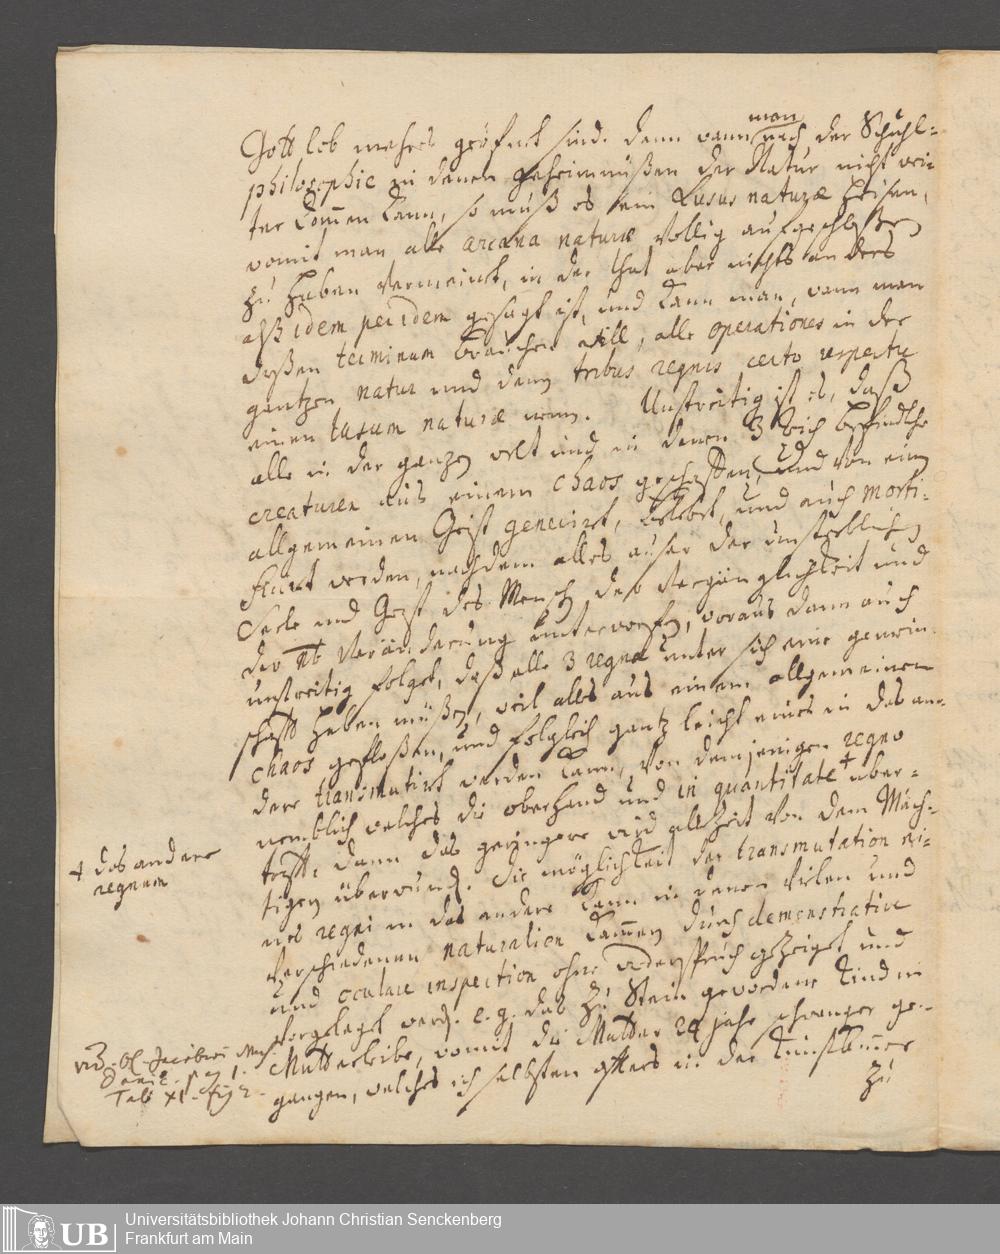 man
Gott lob mehrers geöfnet sind. dann wann nach der Schuhl=
philosophie in denen geheimnüßen der Natur nicht wei=
ter kom̄en kann, so muß es ein Lusus naturæ heisen,
womit man alle arcana naturæ völlig aufgeschloßen
zu haben vermeinet, in der that aber nichts anders
alß idem per idem gesagt ist, und kann man, wann man
dießen terminum brauchen will, alle operationes in der
gantzen natur und denen tribus regnis certo respectu
einen lusum naturæ nennen. Unstreitig ist es, daß
alle in der ganzen welt und in denen 3 Reich befindliche
creaturen aus einem chaos geschaffen, und von einem
allgemeinen Geist generiret, belebet, und auch morti=
ficirt werden, nachdem alles auser der unsterblichen
Seele und Geist des Menschen der Vergänglichkeit und
der Veränderung unterworffen, woraus dann auch
unstreitig folget, daß alle 3 regna unter sich eine gemein=
schafft haben müßen, weil alles aus einem allgemeinen
chaos gefloßen, und folglich gantz leicht eines in das an=
dere transmutirt werden kann, von demjenigen regno
nemblich welches die oberhand und in quantitate + uber=
trifft, dann das geringere wird allezeit von dem Mäch=
tigen überwunden. Die möglichkeit der transmutation ei=
nes regni in das andere kann in denen vielen und
verschiedenen naturalien kammern durch demonstrative
und oculare inspection ohne widerspruch gezeiget und
vorgelegt werden. e. g. das zu Stein gewordene Kind in
Mutterleibe, womit die Mutter 24 jahr schwanger ge=
gangen, welches ich selbsten öfters in der Kunstkam̄er
zu
+ das andere
regnum
vid. Ol. Jacobæi Mus.
pag 1.
Tab XI. fig 2.
Universitätsbibliothek Johann Christian Senckenberg
Frankfurt am Main
UB